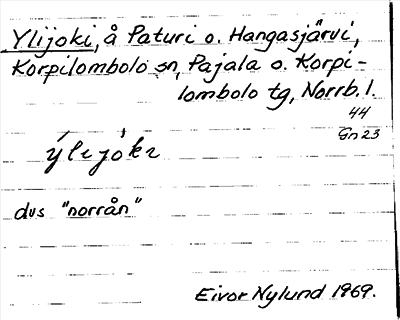 Ylijoki, å Paturi o. Hangasjärvi,
Korpilombolo sn, Pajala o. Korpi-
lombolo tg, Norrb. l.
44
Gn 23
dvs "norrån"
Eivor Nylund 1969.